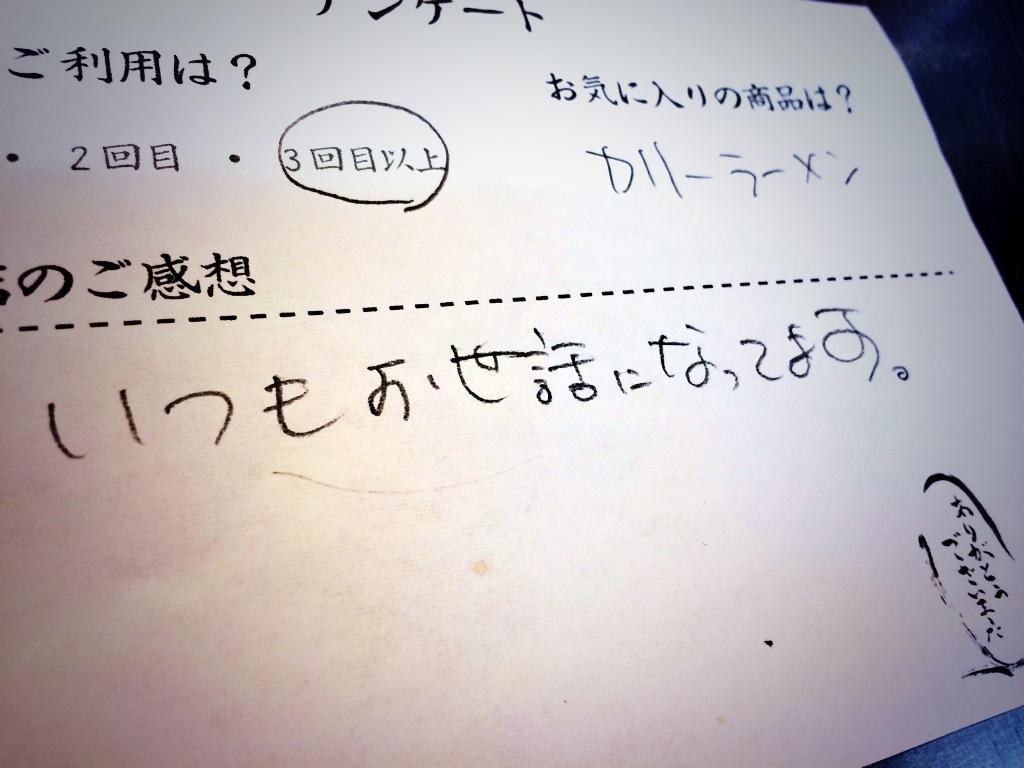 アンケート
ご利用は?
お気に入りの商品は?
・ 2回目 ・ 3回目以上
カリーラーメン
のご感想
いつもお世話になってます。
ありがとう
ございました